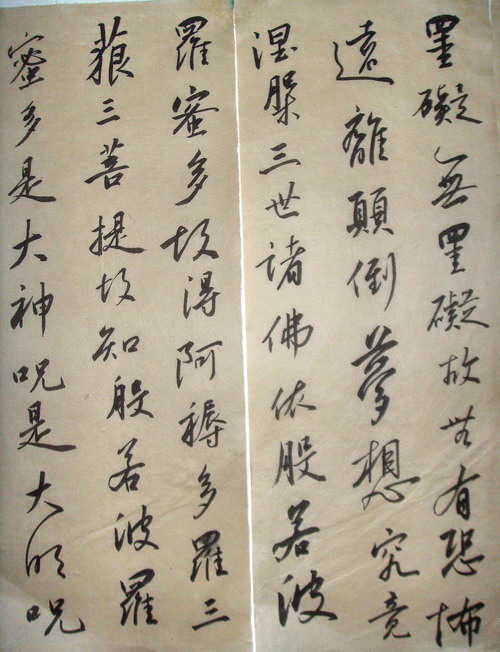 罣礙無罣礙故無有恐怖
遠離顛倒夢想究竟
涅槃三世諸佛依般若波
羅蜜多故得阿耨多羅三
藐三菩提故知般若波羅
蜜多是大神咒是大明咒